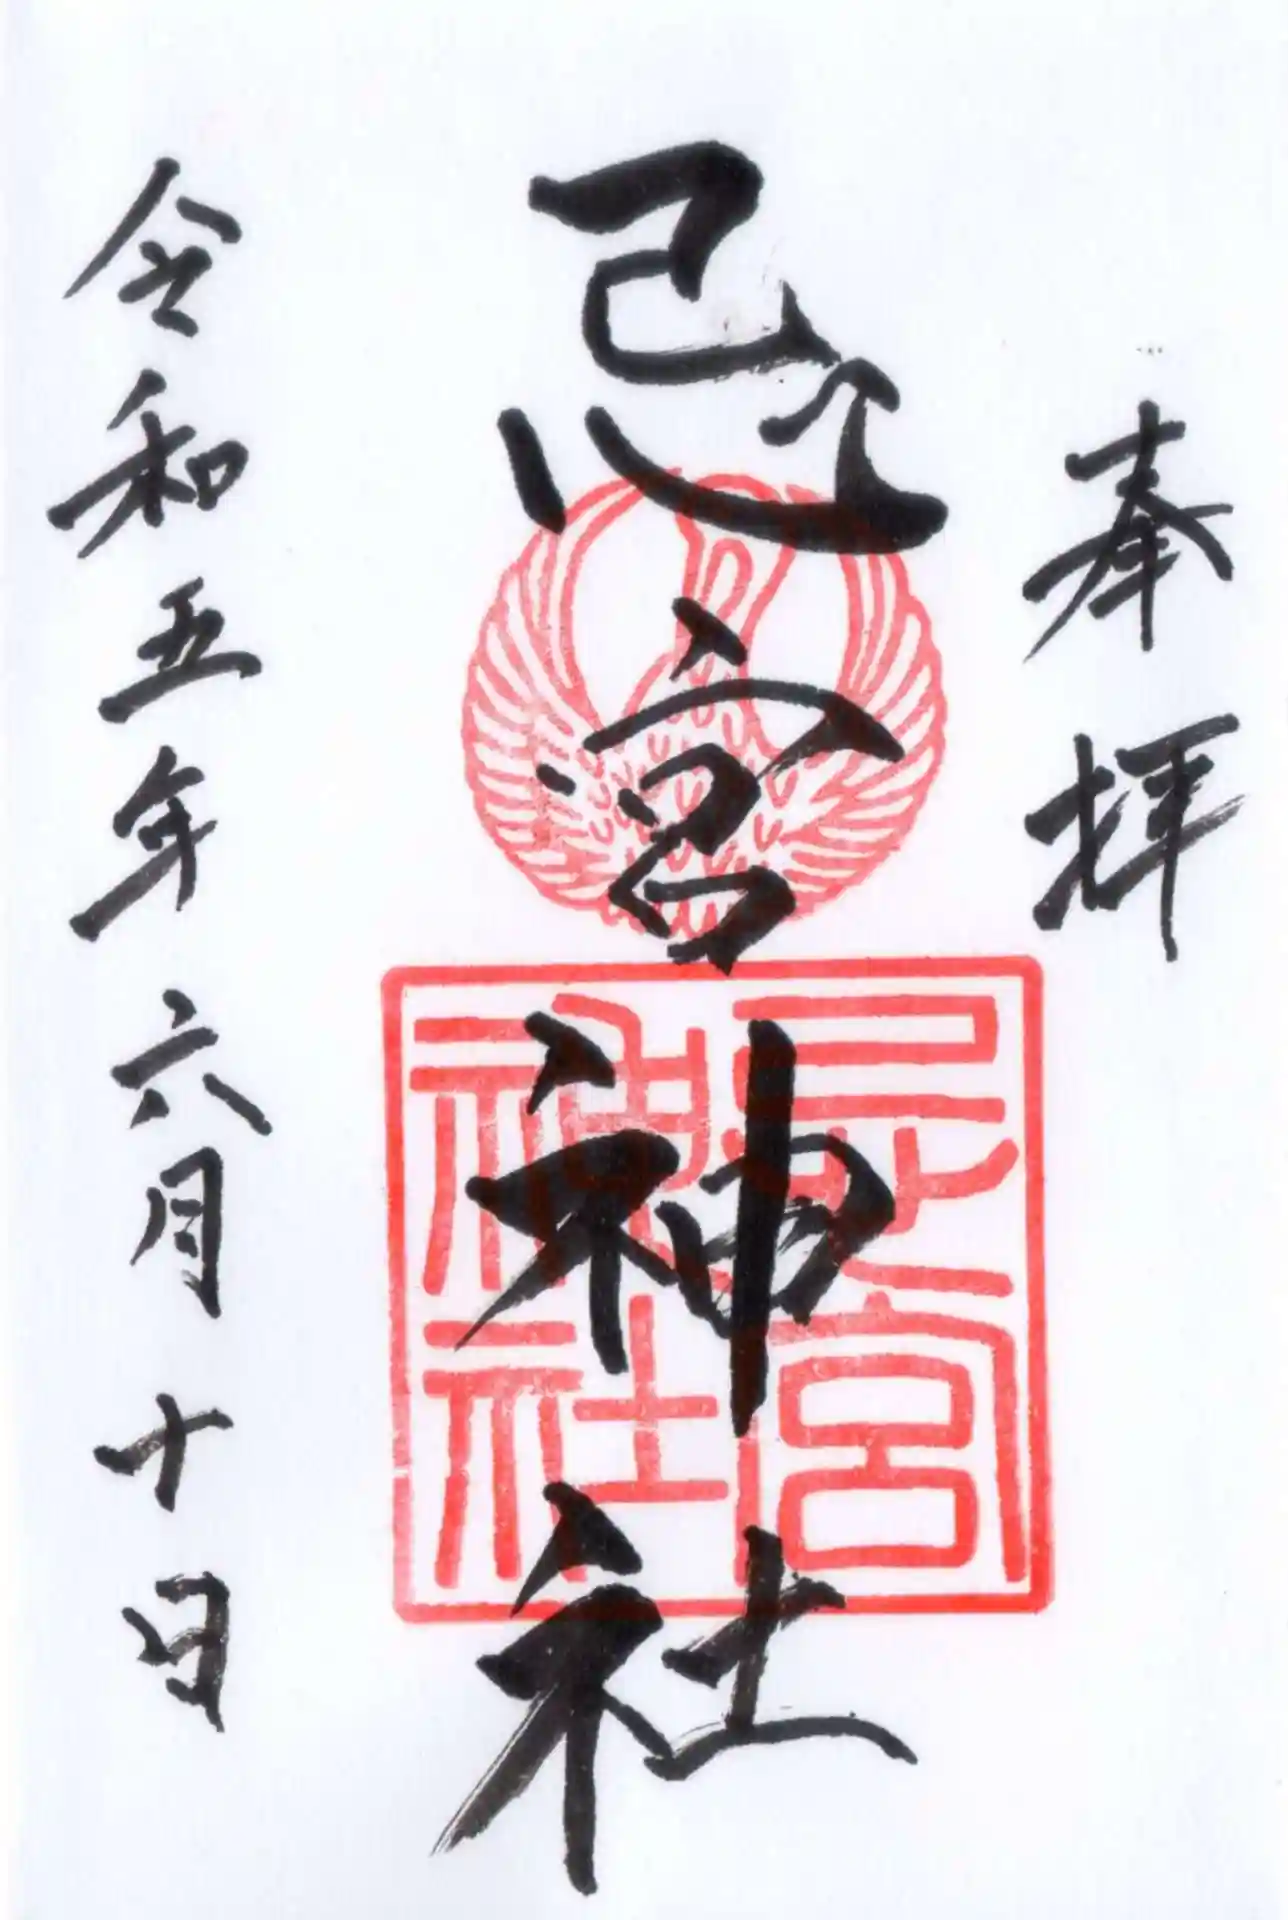 奉拝
忌宮神社
忌宮神社
令和五年六月十日